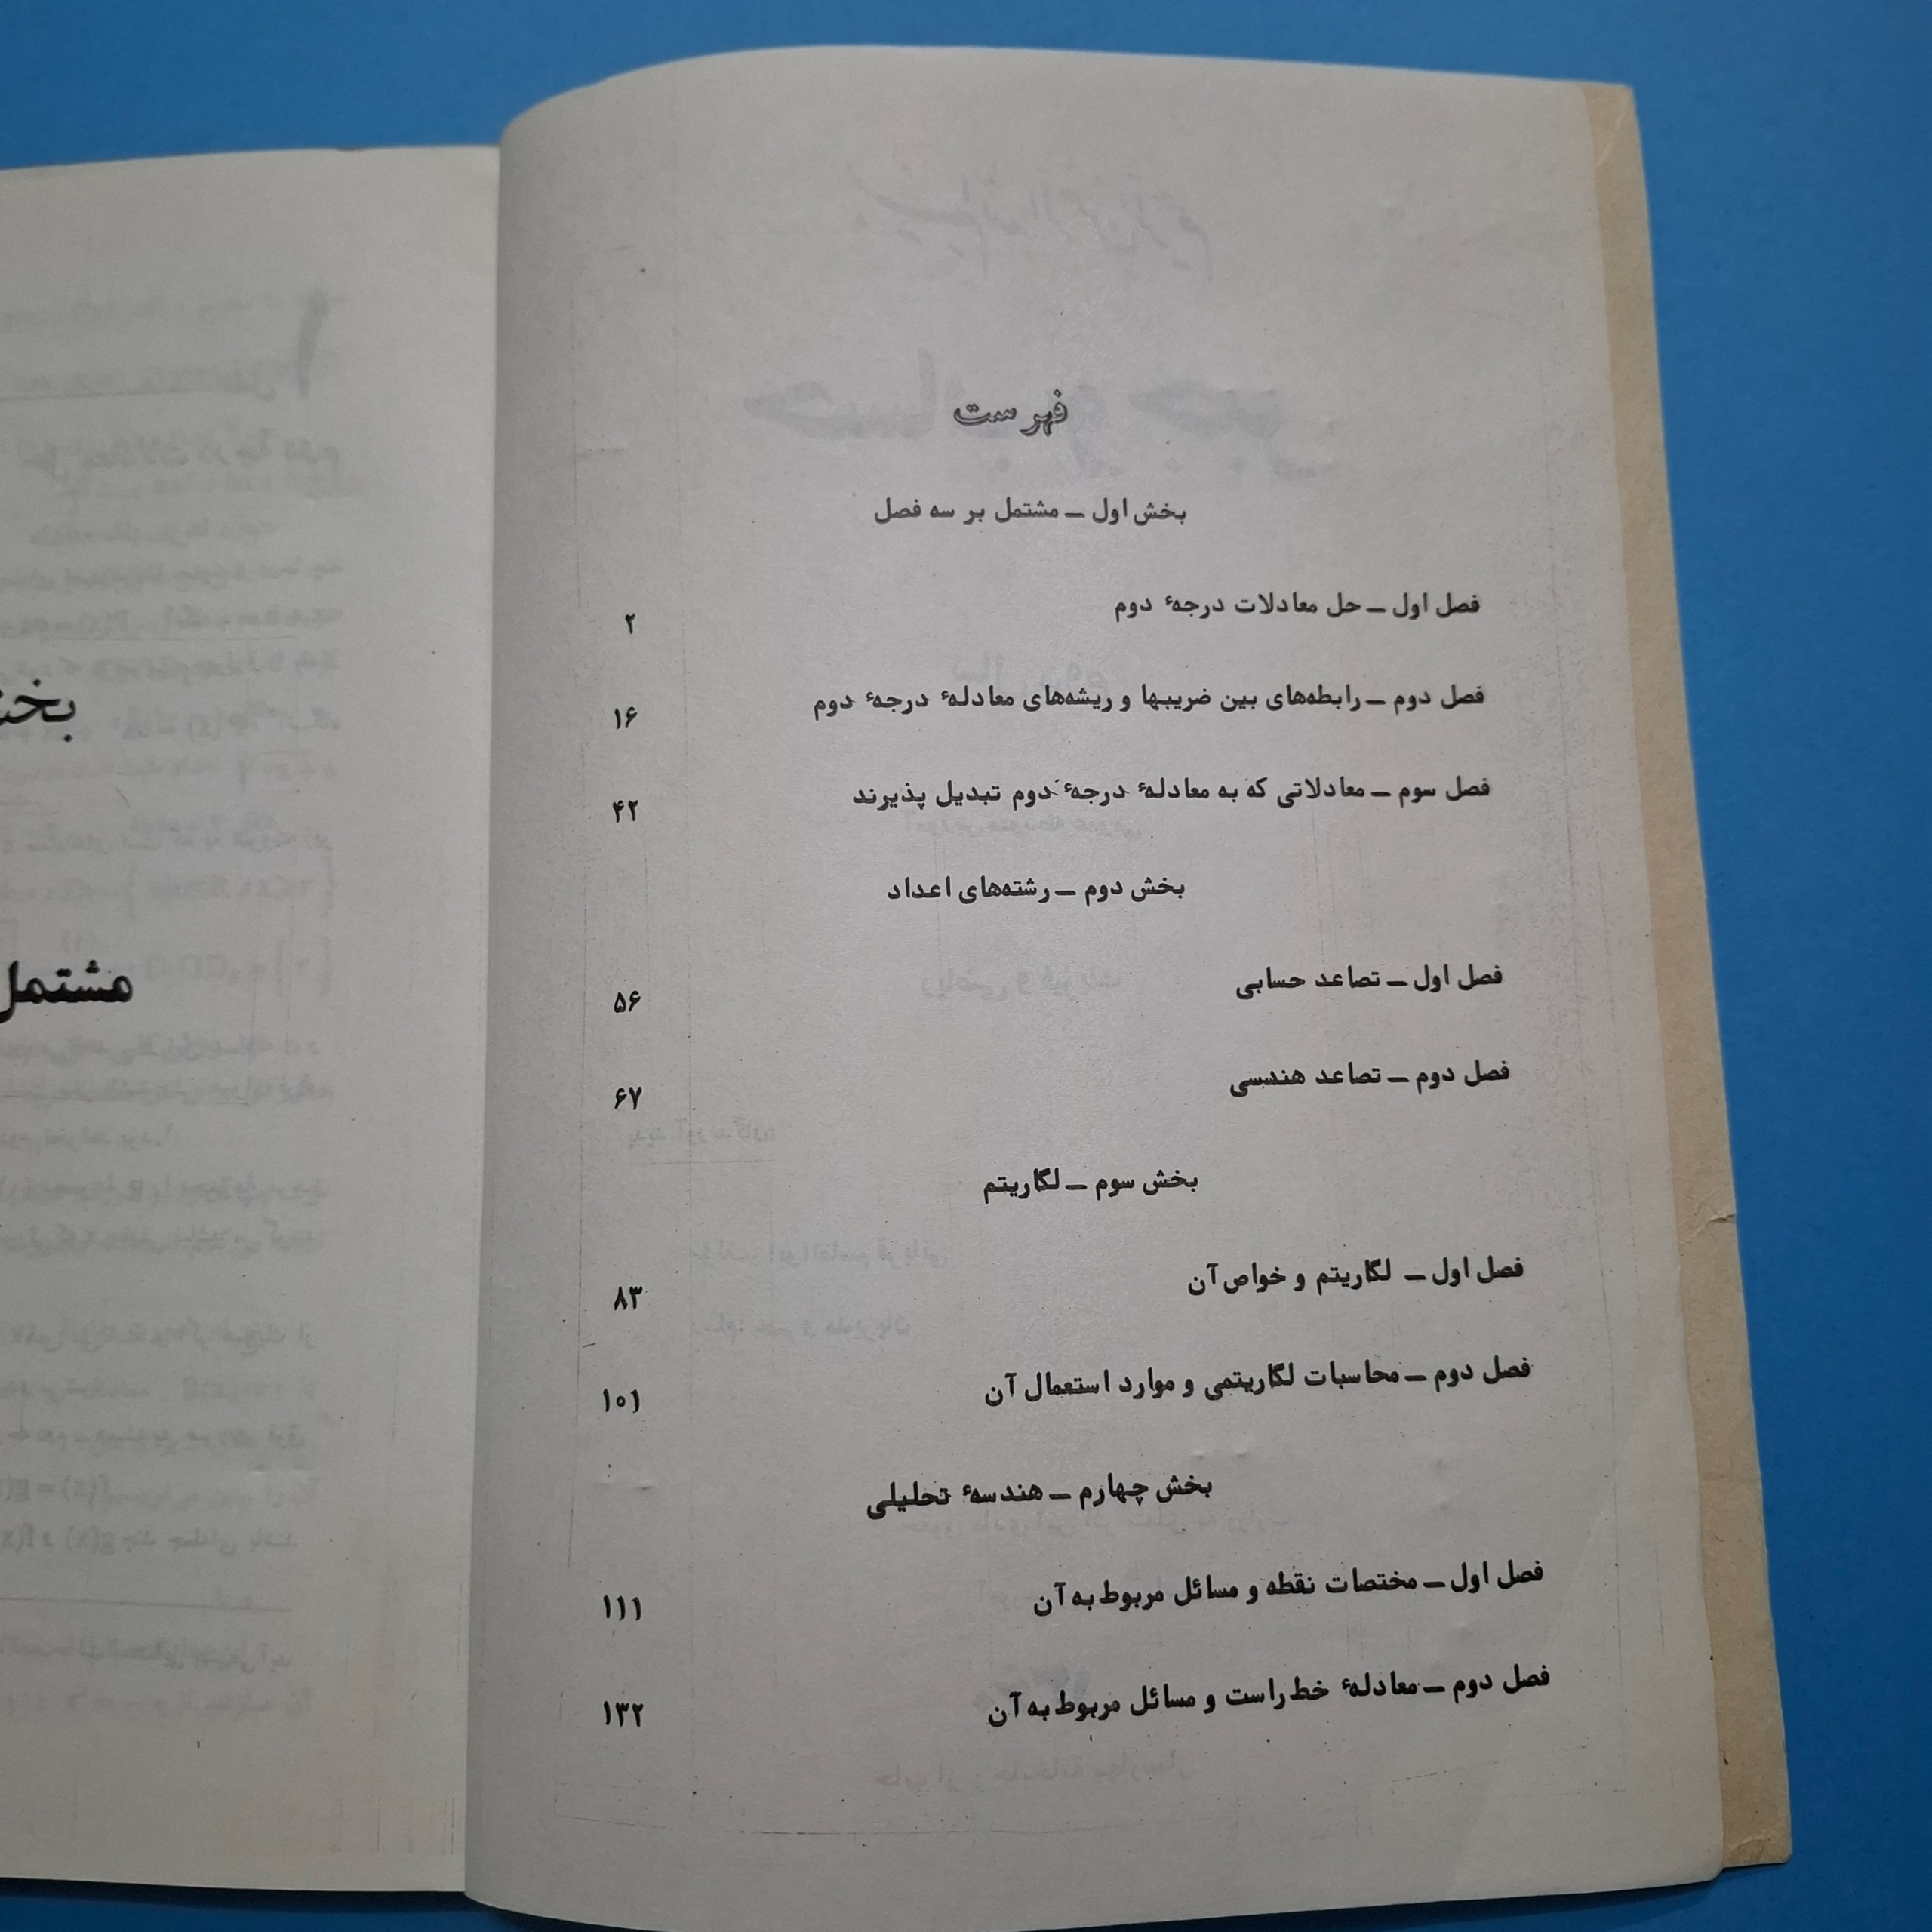 فهرست
بخش اول ـ مشتمل بر سه فصل
فصل اول ـ حل معادلات درجهٔ دوم ۲
فصل دوم ـ رابطه‌های بین ضریبها و ریشه‌های معادلهٔ درجهٔ دوم ۱۶
فصل سوم ـ معادلاتی که به معادلهٔ درجهٔ دوم تبدیل پذیرند ۴۲
بخش دوم ـ رشته‌های اعداد
فصل اول ـ تصاعد حسابی ۵۶
فصل دوم ـ تصاعد هندسی ۶۷
بخش سوم ـ لگاریتم
فصل اول ـ لگاریتم و خواص آن ۸۳
فصل دوم ـ محاسبات لگاریتمی و موارد استعمال آن ۱۰۱
بخش چهارم ـ هندسهٔ تحلیلی
فصل اول ـ مختصات نقطه و مسائل مربوط به آن ۱۱۱
فصل دوم ـ معادلهٔ خط راست و مسائل مربوط به آن ۱۳۲
مشتمل